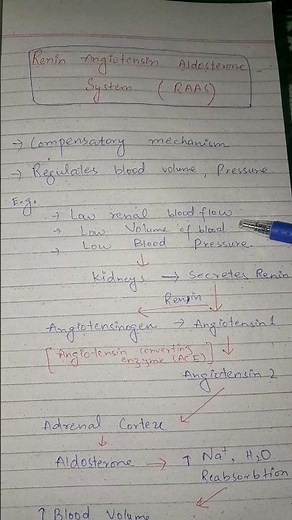 Renin Angiotensin Aldosterone
System (RAAS)
→ Compensatory mechanism
→ Regulates blood volume, Pressure
E.g.
→ Low renal blood flow
→ Low Volume of blood
→ Low Blood Pressure
↓
Kidneys → Secretes Renin
Renin
Angiotensinogen → Angiotensin 1
[Angiotensin converting
enzyme (ACE)]
Angiotensin 2
Adrenal Cortex
↓
Aldosterone → ↑ Na⁺, H₂O
Reabsorbtion
↑ Blood Volume